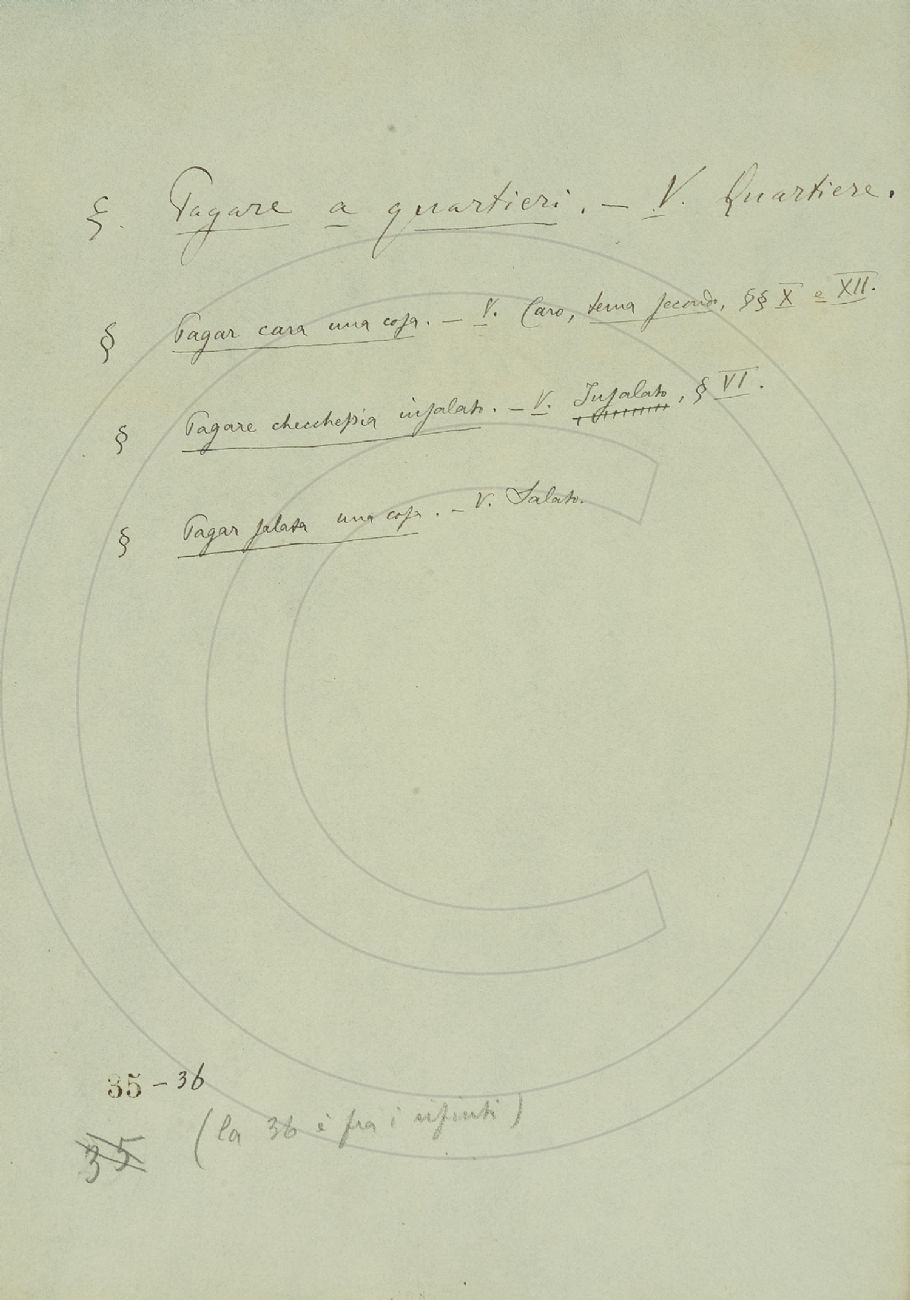 §. Pagare a quartieri. – V. Quartiere.
§ Pagar cara una cosa. – V. Caro, tema secondo, §§ X e XII.
§ Pagare checchessia insalato. – V. Insalato, § VI.
§ Pagar salata una cosa. – V. Salato.
35 – 36
(la 36 è fra i rifiuti)
35